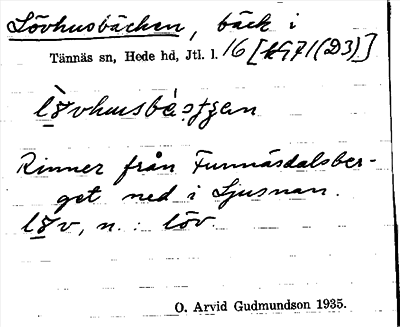 Lövhusbäcken, bäck i
Tännäs sn, Hede hd, Jtl. l. 16 [HG71(D3)]
Rinner från Funnäsdalsber-
get ned i Ljusnan.
n.: löv.
O. Arvid Gudmundson 1935.